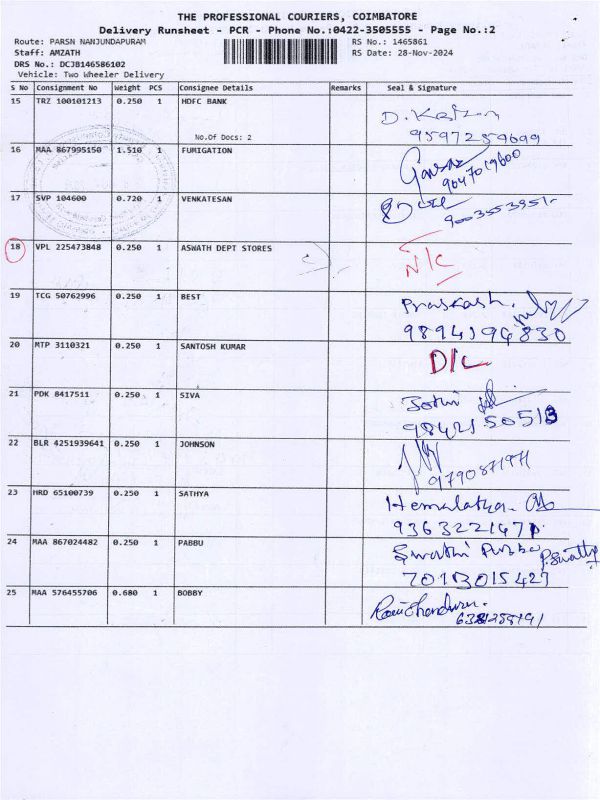 THE PROFESSIONAL COURIERS, COIMBATORE
Delivery Runsheet - PCR - Phone No.:0422-3505555 - Page No.:2
Route: PARSN NANJUNDAPURAM RS No.: 1465861
Staff: AMZATH RS Date: 28-Nov-2024
DRS No.: DCJB146586102
Vehicle: Two Wheeler Delivery
S No Consignment No Weight PCS Consignee Details Remarks Seal & Signature
15 TRZ 100101213 0.250 1 HDFC BANK
No.Of Docs: 2
9597259699
16 MAA 867995150 1.510 1 FUMIGATION
9047019600
17 SVP 104600 0.720 1 VENKATESAN
9003553951
18 VPL 225473848 0.250 1 ASWATH DEPT STORES N/C
19 TCG 50762996 0.250 1 BEST
9894196830
20 MTP 3110321 0.250 1 SANTOSH KUMAR D/L
21 PDK 8417511 0.250 1 SIVA Jothi
9842150513
22 BLR 4251939641 0.250 1 JOHNSON
9790871971
23 HRD 65100739 0.250 1 SATHYA Hemalatha
9363221471
24 MAA 867024482 0.250 1 PABBU Swathi
P. Swathi
7013015427
25 MAA 576455706 0.680 1 BOBBY